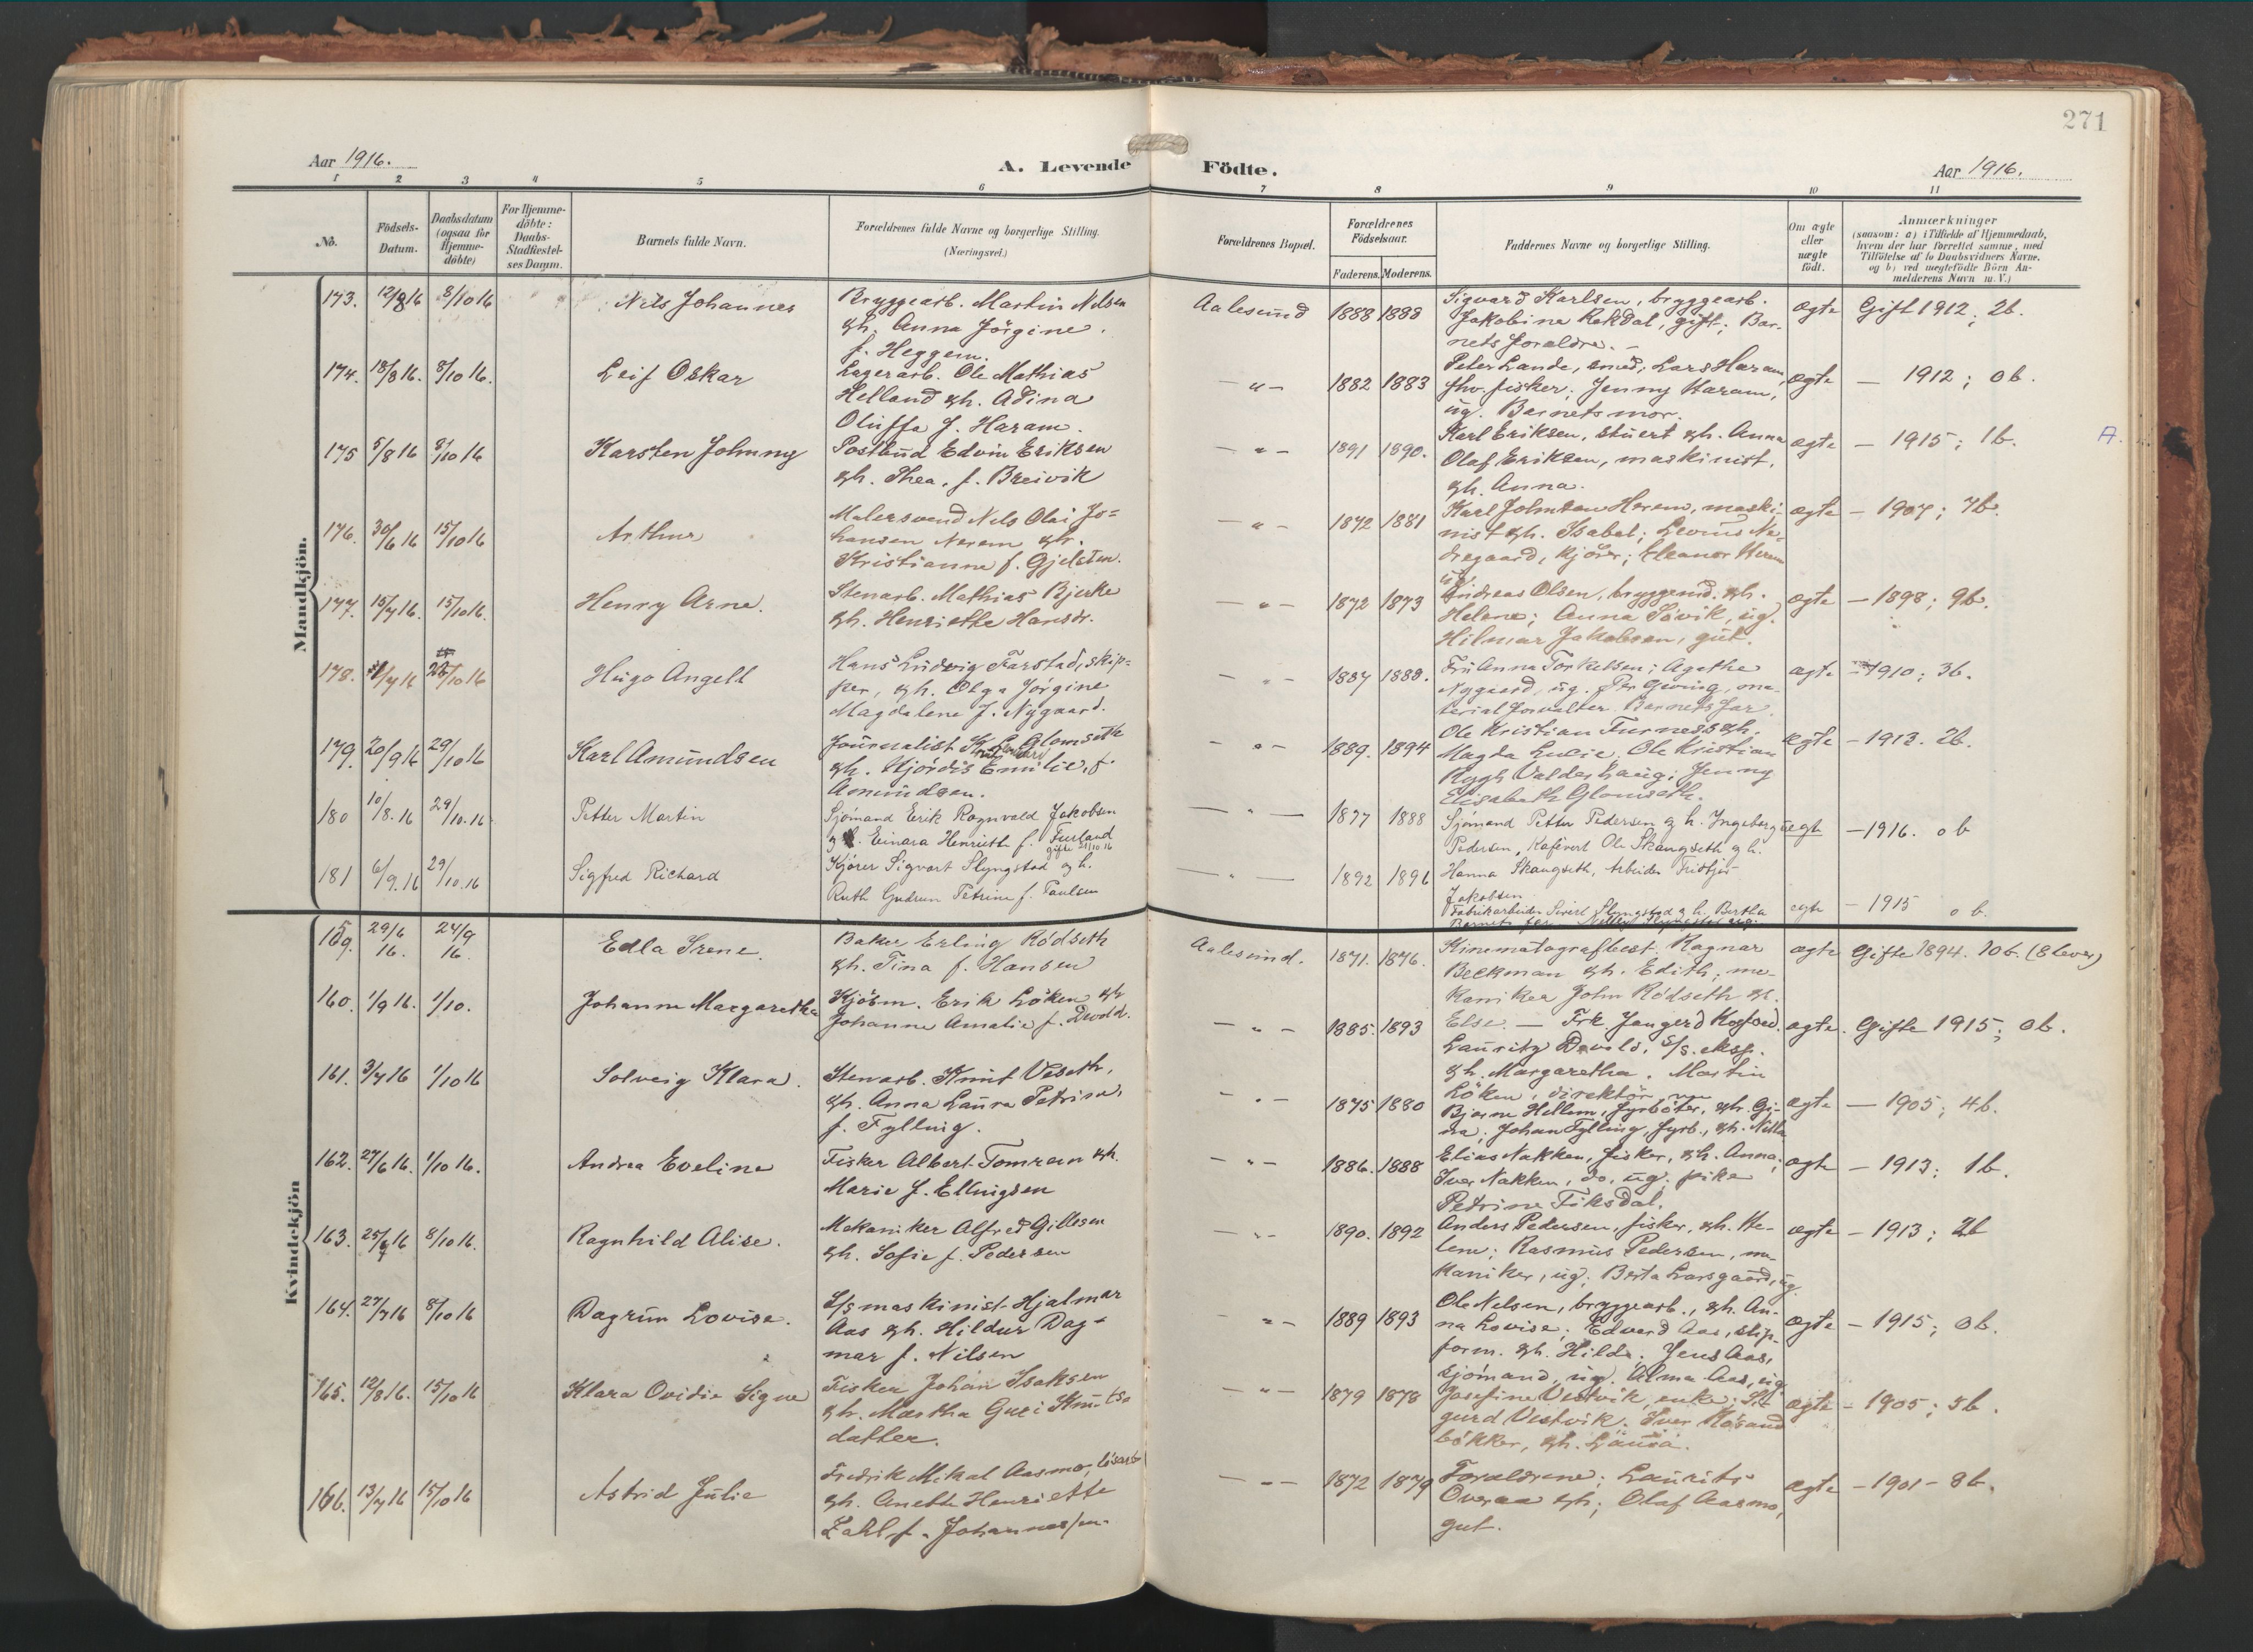 271
Aar 1916.
A. Levende Födte.
Aar 1916.
1 2 3 4 5 6 7 8 9 10 11
No.
Födsels-Datum.
Daabsdatum (ogsaa for Hjemme-döbte)
For Hjemme-döbte: Daabs-Stadfæstel-ses Datum.
Barnets fulde Navn.
Forældrenes fulde Navne og borgerlige Stilling.
(Næringsvei.)
Forældrenes Bopæl.
Forældrenes Födselsaar.
Faderens. Moderens.
Faddernes Navne og borgerlige Stilling.
Om ægte eller uægte födt.
Anmærkninger
(saasom: a) i Tilfælde af Hjemmedaab,
hvem der har forrettet samme, med
Tilföielse af to Daabsvidners Navne.
og b) ved uægtefödte Börn An-
melderens Navn m. V.)
Mandkjön.
173. 12/8 16 8/10 16 Nils Johannes
Bryggearb. Martin Nilsen
gh. Anna Jörgine,
f. Heggem.
Aalesund 1888 1888
Sigvard Karlsen, bryggearb.
Jakobine Rekdal, gift; Bar-
nets foraldre. -
ægte Gift 1912; 2b.
174. 18/8 16. 8/10 16. Leif Oskar
Lagerarb. Ole Mathias
Helland gh. Adina
Oluffa f. Haram.
— " — 1882 1883
Peter Lande, smed; Lars Haram,
fhv. fisker; Jenny Haram,
ug. Barnets mor.
ægte — 1912; 0b.
175 5/8 16 8/10 16 Karsten Johnny
Postbud Edvin Eriksen
gh. Thea, f. Breivik
— " — 1891 1890.
Karl Eriksen, stuert gh. Anna
Olaf Eriksen, maskinist,
gh. Anna.
ægte — 1915; 1b. A.
176. 30/6 16 15/10 16 Arthur
Malersvend Nils Olai Jo=
hansen Nerem gh.
Kristianne f. Gjelsten.
— " — 1872 1881
Karl Johnsen Herem, maski-
nist gh. Isabel; Levins Ne-
dregaard, kjörer; Eleanor
ug.
ægte — 1907; 7b.
177. 15/7 16. 15/10 16. Henry Arne.
Stenarb. Mathias Bjerke
gh. Henriette Hansdr.
— " — 1872 1873
Andreas Olsen, bryggemd. gh.
Helene; Anna Sövik, ug.
Hilmar Jakobsen, gut.
ægte — 1898; 9b.
178. /7 16 22/10 16 Hugo Angell
Hans Ludvig Farstad, skip=
per, gh. Olga Jörgine
Magdalene f. Nygaard.
— " — 1887 1888.
Fru Anna Torkelsen; Agathe
Nygaard, ug. Per Gjering, ma-
terialforvalter. Barnets far.
ægte — 1910; 3b.
179. 20/9 16 29/10 16 Karl Amundsen
Journalist K. L. Glomseth
gh. Hjördis Emilie, f.
Amundsen.
— " — 1889. 1894
Ole Kristian Furnes gh.
Magda Lucie. Ole Kristian
Rygh Valderhaug; Jenny
Elisabeth Glomseth.
ægte — 1913. 2b.
180 10/8. 16 29/10. 16 Petter Martin
Sjömand Erik Ragnvald Jakobsen
g. h. Einara Henriette f. Furland
gifte 21/10 16
— " — 1877 1888
Sjömand Petter Pedersen g h. Ingeborg
Pedersen, Kafévert Ole Skaugseth g h.
Hanna Skaugseth, Arbeider Fridtjof
Jakobsen
ægte — 1916. 0 b
181 6/9. 16 29/10. 16 Sigfred Richard
Kjörer Sigvart Slyngstad g h.
Ruth Gudrun Petrine f. Paulsen
— " — 1892 1896
Fabrikarbeider Sivert Slyngstad g h. Bertha
Barnets far. Slyngstad ug.
egte — 1915 0 b.
Kvindekjön
159. 29/6 16. 24/9 16. Edla Irene.
Baker Erling Rödseth
gh. Tina f. Hansen
Aalesund. 1871. 1876.
Kinematografbest. Ragnar
Beckman gh. Edith; me-
kaniker John Rödseth gh.
Else. —
ægte Gifte 1894. 10b. (8 lever)
160. 1/9 16. 1/10. Johanne Margaretha
Kjöbm. Erik Löken gh
Johanne Amalie f. Devold.
— " — 1885. 1893
Frk. Jangerd Kofoed
Lauritz Devold, S/s. eksp.
gh. Margaretha. Martin
Löken, direktör
ægte. Gifte 1915; 0b.
161. 3/7 16 1/10 16 Solveig Klara.
Stenarb. Knut Vaseth,
gh. Anna Laura Petrine,
f. Fylling.
— " — 1875 1880
Bjarne Hellem, fyrböter, gh. Gi-
na; Johan Fylling, fyrb., gh. Nilla
ægte — 1905; 4b.
162. 27/6 16. 1/10 16. Andrea Eveline
Fisker Albert Tomren gh.
Marie f. Ellingsen
— " — 1886. 1888
Elias Nakken, fisker, gh. Anna;
Iver Nakken, do, ug. pike
Petrine Fiksdal.
ægte — 1913; 1b.
163. 25/7 16 8/10 16. Ragnhild Alise.
Mekaniker Alfred Gillesen
gh. Sofie f. Pedersen
— " — 1890. 1892
Anders Pedersen, fisker, gh. He-
lene; Rasmus Pedersen, me
kaniker, ug; Berta Larsgaard, ug.
ægte — 1913; 2b
164. 27/7 16 8/10 16 Dagrun Lovise.
S/s maskinist Hjalmar
Aas gh. Hildur Dag-
mar f. Nilsen
— " — 1889 1893
Ole Nelsen, bryggearb., gh. An-
na Lovise; Edvard Aas, skip-
form. gh. Hilda; Jens Aas,
sjömand, ug. Alma Aas, ug
ægte — 1915; 0b.
165. 12/8 16. 15/10 16 Klara Ovidie Signe
Fisker Johan Isaksen
gh. Martha Guri Knuts-
datter.
— " — 1879 1878
Josefine Vestvik, enke; Si-
gurd Vestvik. Iver Rösand
bökker, gh. Laura.
ægte — 1905; 5b.
166. 13/7 16 15/10 16 Astrid Julie
Fredrik Mikal Aasmo, lösarb
gh. Anette Henriette
Zahl f. Johannessen.
— " — 1872 1879
Foraldrene; Laurits
Overaa gh; Olaf Aasmo,
gut.
ægte — 1901 - 8b.